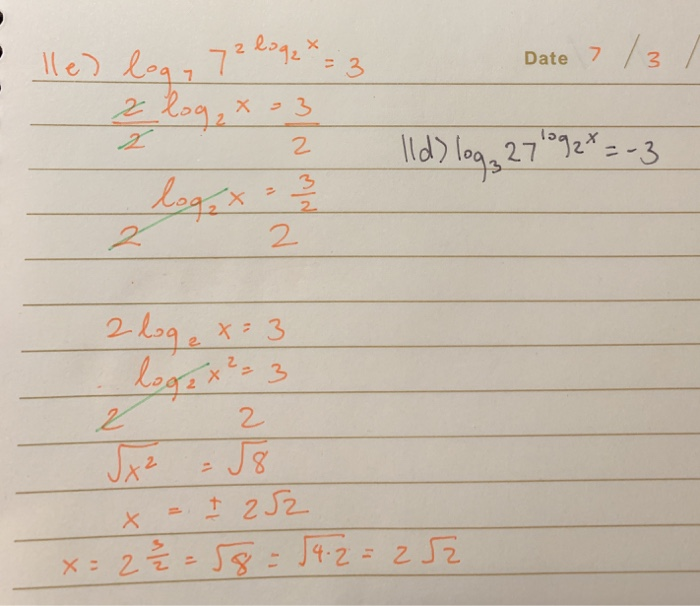 Date 7 / 3 /
11e) log₇ 7^(2 log₂ x) = 3
2 log₂ x = 3
2 2
11d) log₃ 27^(log₂ x) = -3
log₂ x = 3/2
2 2
2 log₂ x = 3
log₂ x² = 3
2 2
√x² = √8
x = ± 2√2
x = 2^(3/2) = √8 = √4·2 = 2√2